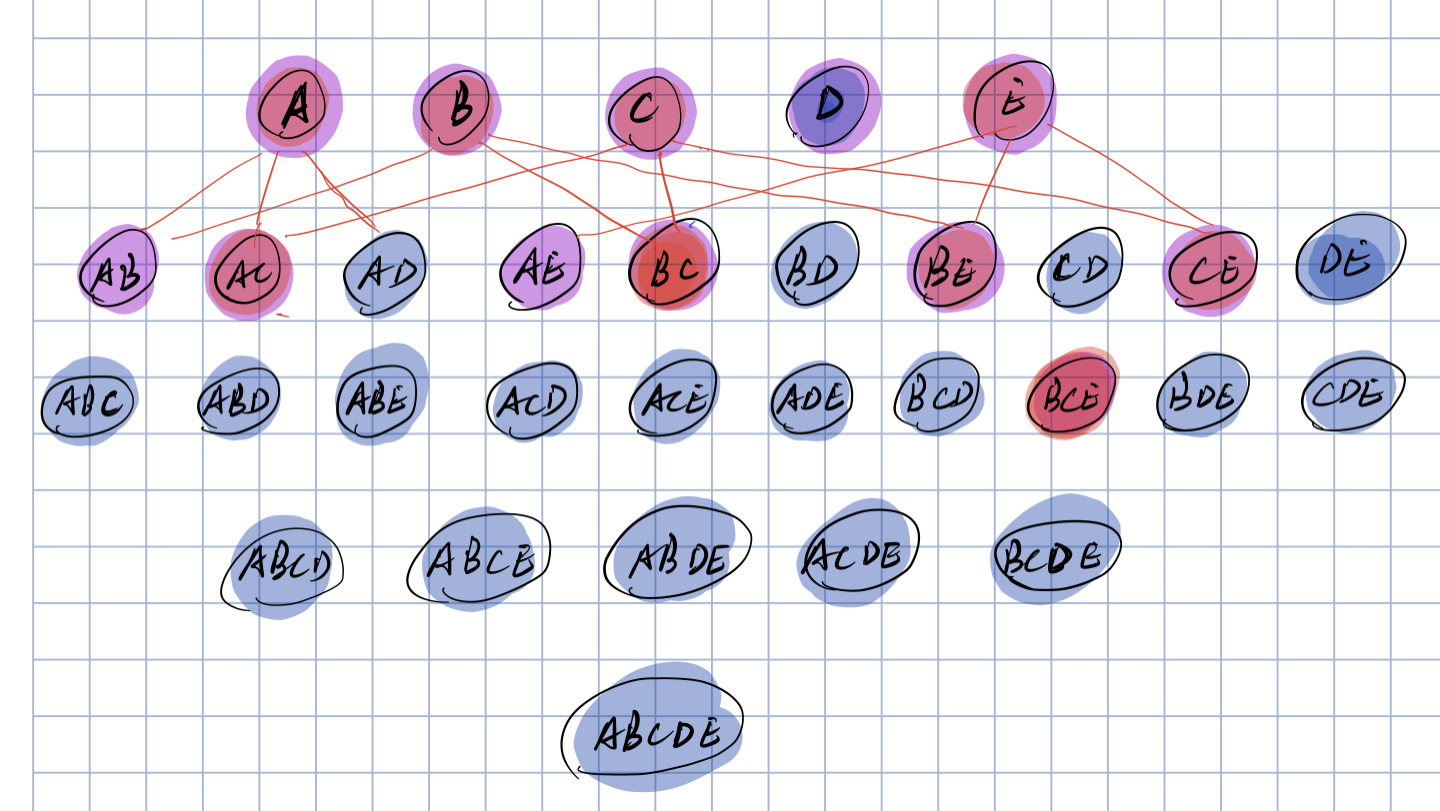 A B C D E
AB AC AD AE BC BD BE CD CE DE
ABC ABD ABE ACD ACE ADE BCD BCE BDE CDE
ABCD ABCE ABDE ACDE BCDE
ABCDE